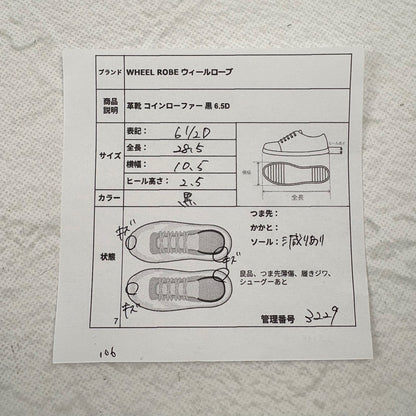 ブランド WHEEL ROBE ウィールローブ
商品説明 革靴 コインローファー 黒 6.5D
サイズ
表記: 6 1/2D
全長: 28.5
横幅: 10.5
ヒール高さ: 2.5
横幅
全長
カラー 黒
状態
キズ
キズ
キズ
キズ
つま先:
かかと:
ソール: 減りあり
良品、つま先薄傷、履きジワ、
シューグーあと
7
管理番号 3229
106